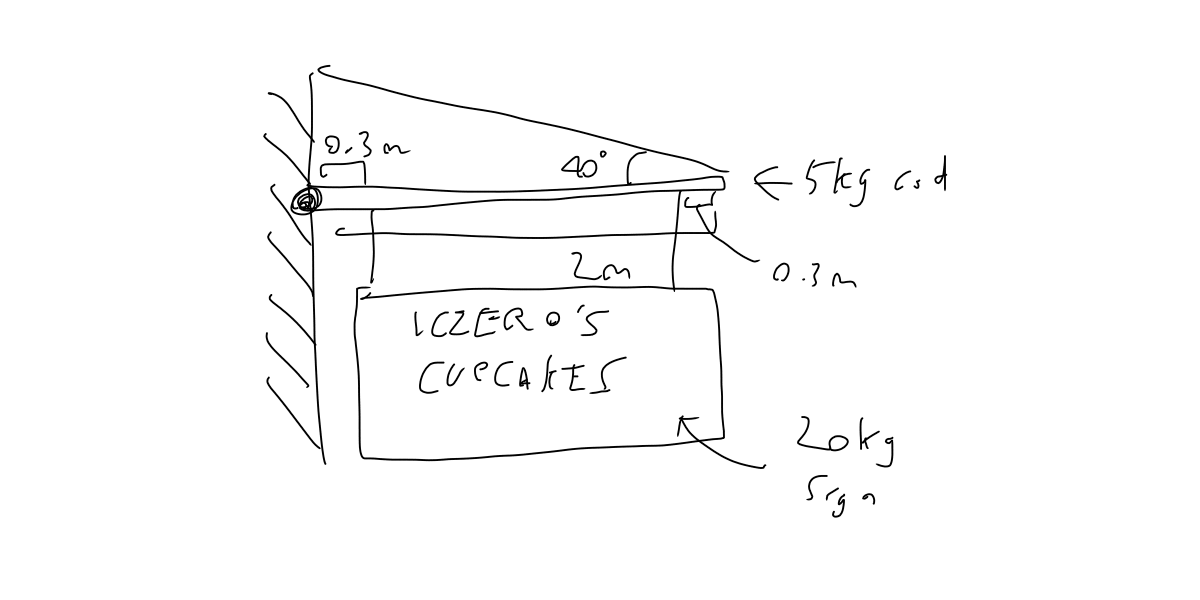 0.3 m
40°
5kg rod
0.3 m
2m
ICZERO'S
CUPCAKES
20kg
sign